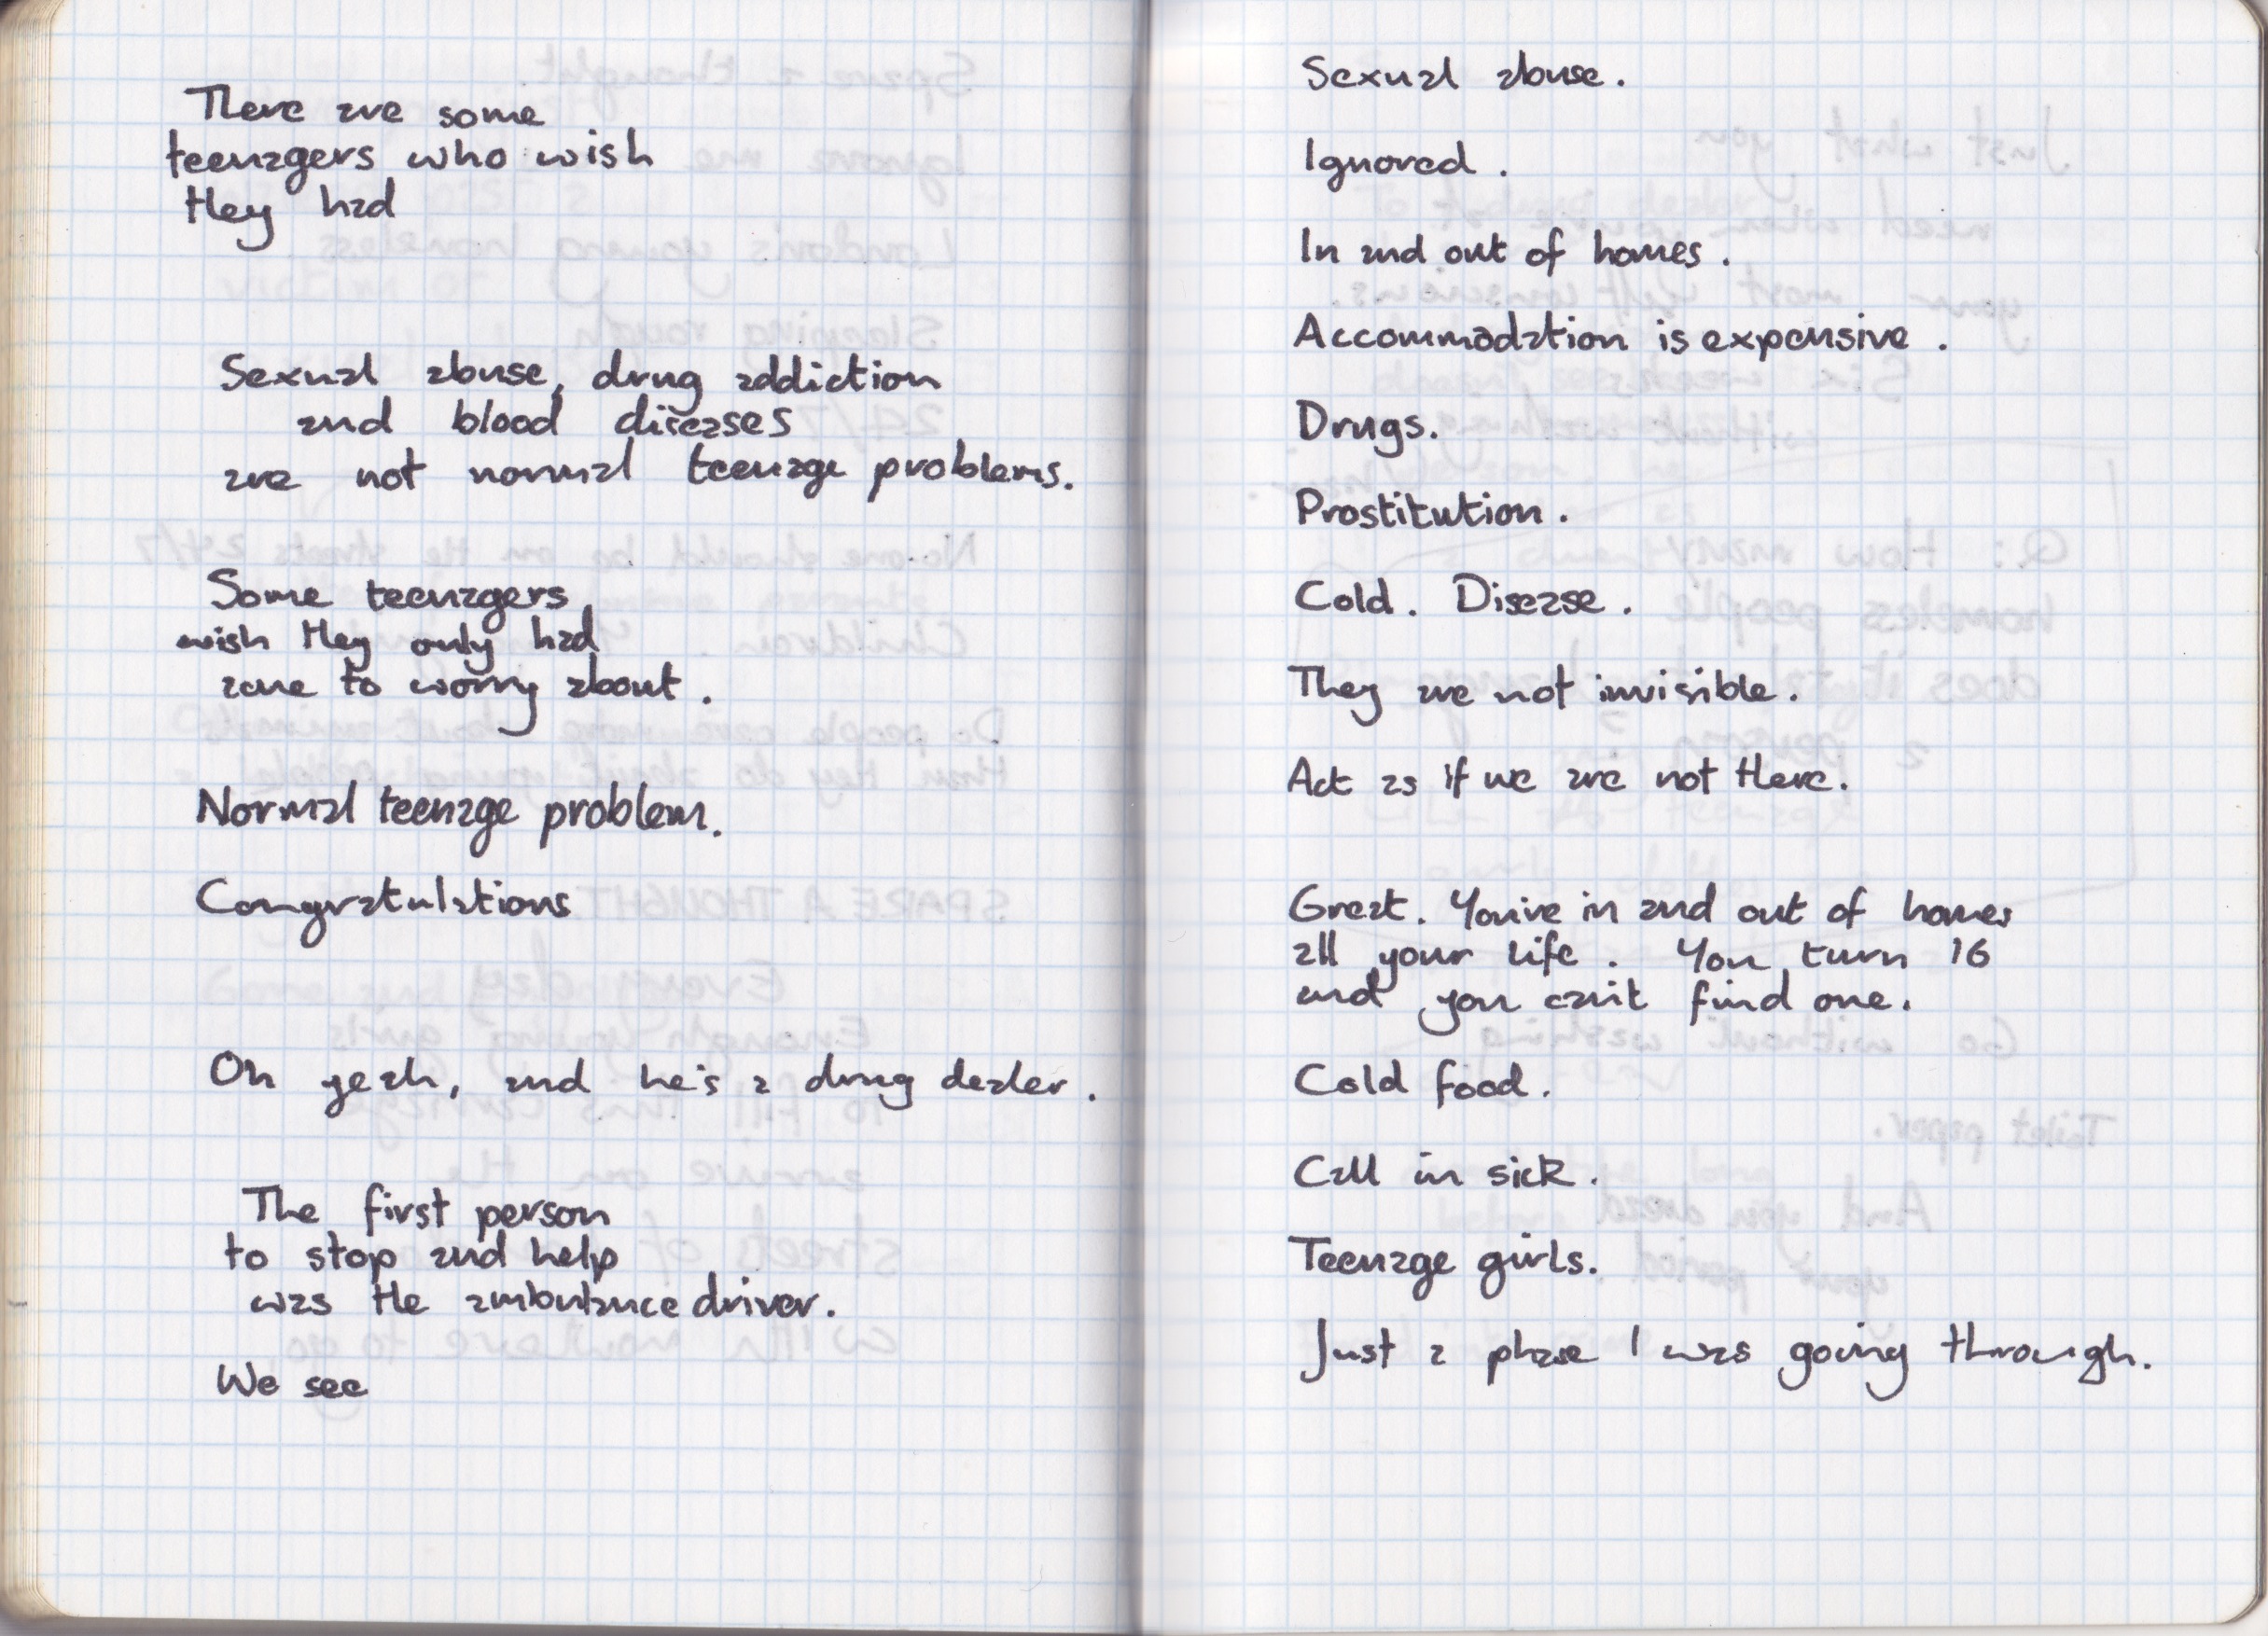 There are some
teenagers who wish
they had
Sexual abuse, drug addiction
and blood diseases
are not normal teenage problems.
Some teenagers
wish they only had
acne to worry about.
Normal teenage problem.
Congratulations
Oh yeah, and he's a drug dealer.
The first person
to stop and help
was the ambulance driver.
We see
Sexual abuse.
Ignored.
In and out of homes.
Accommodation is expensive.
Drugs.
Prostitution.
Cold. Disease.
They are not invisible.
Act as if we are not there.
Great. You're in and out of homes
all your life. You turn 16
and you can't find one.
Cold food.
Call in sick.
Teenage girls.
Just a phase I was going through.